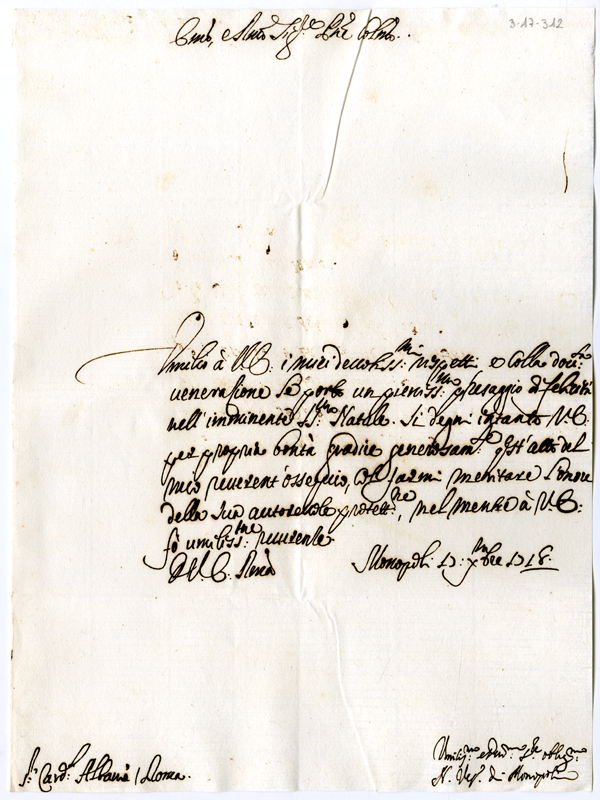 3-17-312
Em.o, e Rmo Sig.re Pñe Colmo.
Umilio à V.E. i miei decotiss:mi rispetti: e colla dov:ta
venerazione Le porto un pieniss:mo presaggio di felicità
nell'imminente SS:mo Natale. Si degni intanto V.E.
per propria bontà gradire generosam.te qst'atto del
mio reverent'osseguio, e farmi meritare l'onore
della sua autorevole protett:ne, nel mentre à V.E:
fò umiliss:me reverenze
D V.E. Rma Monopoli 17: Xmbre 1718.
S.r Card.l Albani / Roma.
Umiliss.mo ed obbl.mo
N. Vesc. di Monopoli